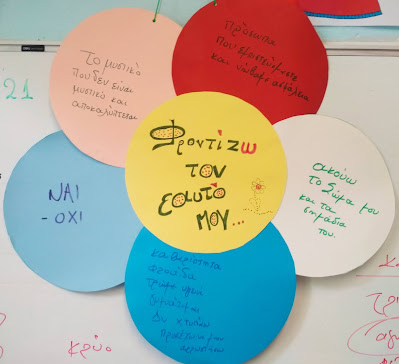 Το μυστικό
που δεν είναι
μυστικό και
αποκαλύπτεται
Πρόσωπα
που εμπιστεύομαστε
και νιώθουμε ασφάλεια
21
Φροντίζω
τον
εαυτό
μου...
ΝΑΙ
- ΟΧΙ
ακούω
το Σώμα μου
και τα
σημάδια
του.
καθαριότητα
χτυπάω
κρύο